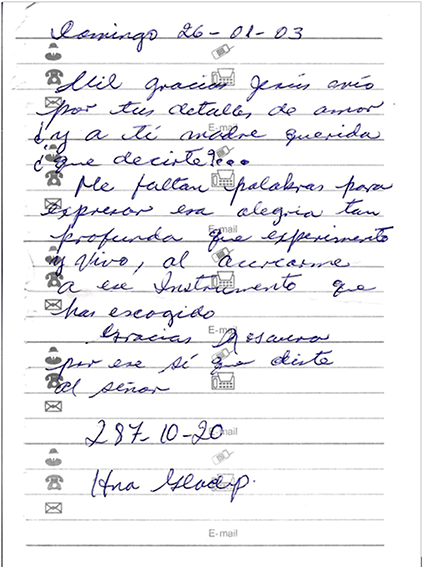 Domingo 26-01-03
Mil gracias Jesús mío
por tus detalles de amor
E-mail
¿y a ti madre querida
¿que decirte?...
Me faltan palabras para
expresar esa alegria tan
E-mail
profunda que experimento
y vivo, al acercarme
a ese Instrumento que
has escogido
E-mail
Gracias
por ese sí que diste
al señor
287-10-20
E-mail
Hna Gladys.
E-mail